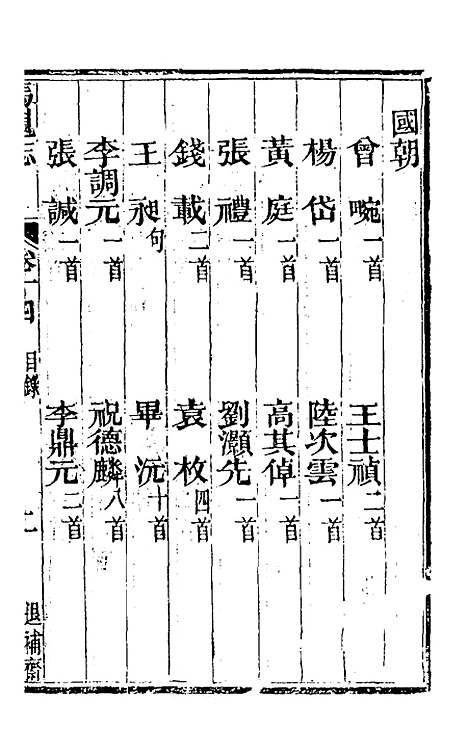 國朝
曾畹一首　王士禎二首
楊岱一首　陸次雲一首
黃庭一首　高其倬一首
張禮一首　劉灝先一首
錢載二首　袁枚四首
王昶句　畢沅十首
李調元一首　祝德麟八首
張誠一首　李鼎元二首
馬嵬志　卷十四　目錄　二　退補齋